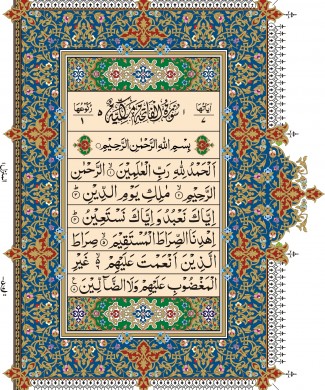 اٰيَاتُهَا ٧ سُوْرَةُ الْفَاتِحَةِ مَكِّيَّةٌ رُكُوْعُهَا ١
بِسْمِ اللّٰهِ الرَّحْمٰنِ الرَّحِيْمِ
اَلْحَمْدُ لِلّٰهِ رَبِّ الْعٰلَمِيْنَ ۙ الرَّحْمٰنِ
الرَّحِيْمِ ۙ مٰلِكِ يَوْمِ الدِّيْنِ ؕ
اِيَّاكَ نَعْبُدُ وَ اِيَّاكَ نَسْتَعِيْنُ ؕ
اِهْدِنَا الصِّرَاطَ الْمُسْتَقِيْمَ ۙ صِرَاطَ
الَّذِيْنَ اَنْعَمْتَ عَلَيْهِمْ ۙ غَيْرِ
الْمَغْضُوْبِ عَلَيْهِمْ وَلَا الضَّآلِّيْنَ